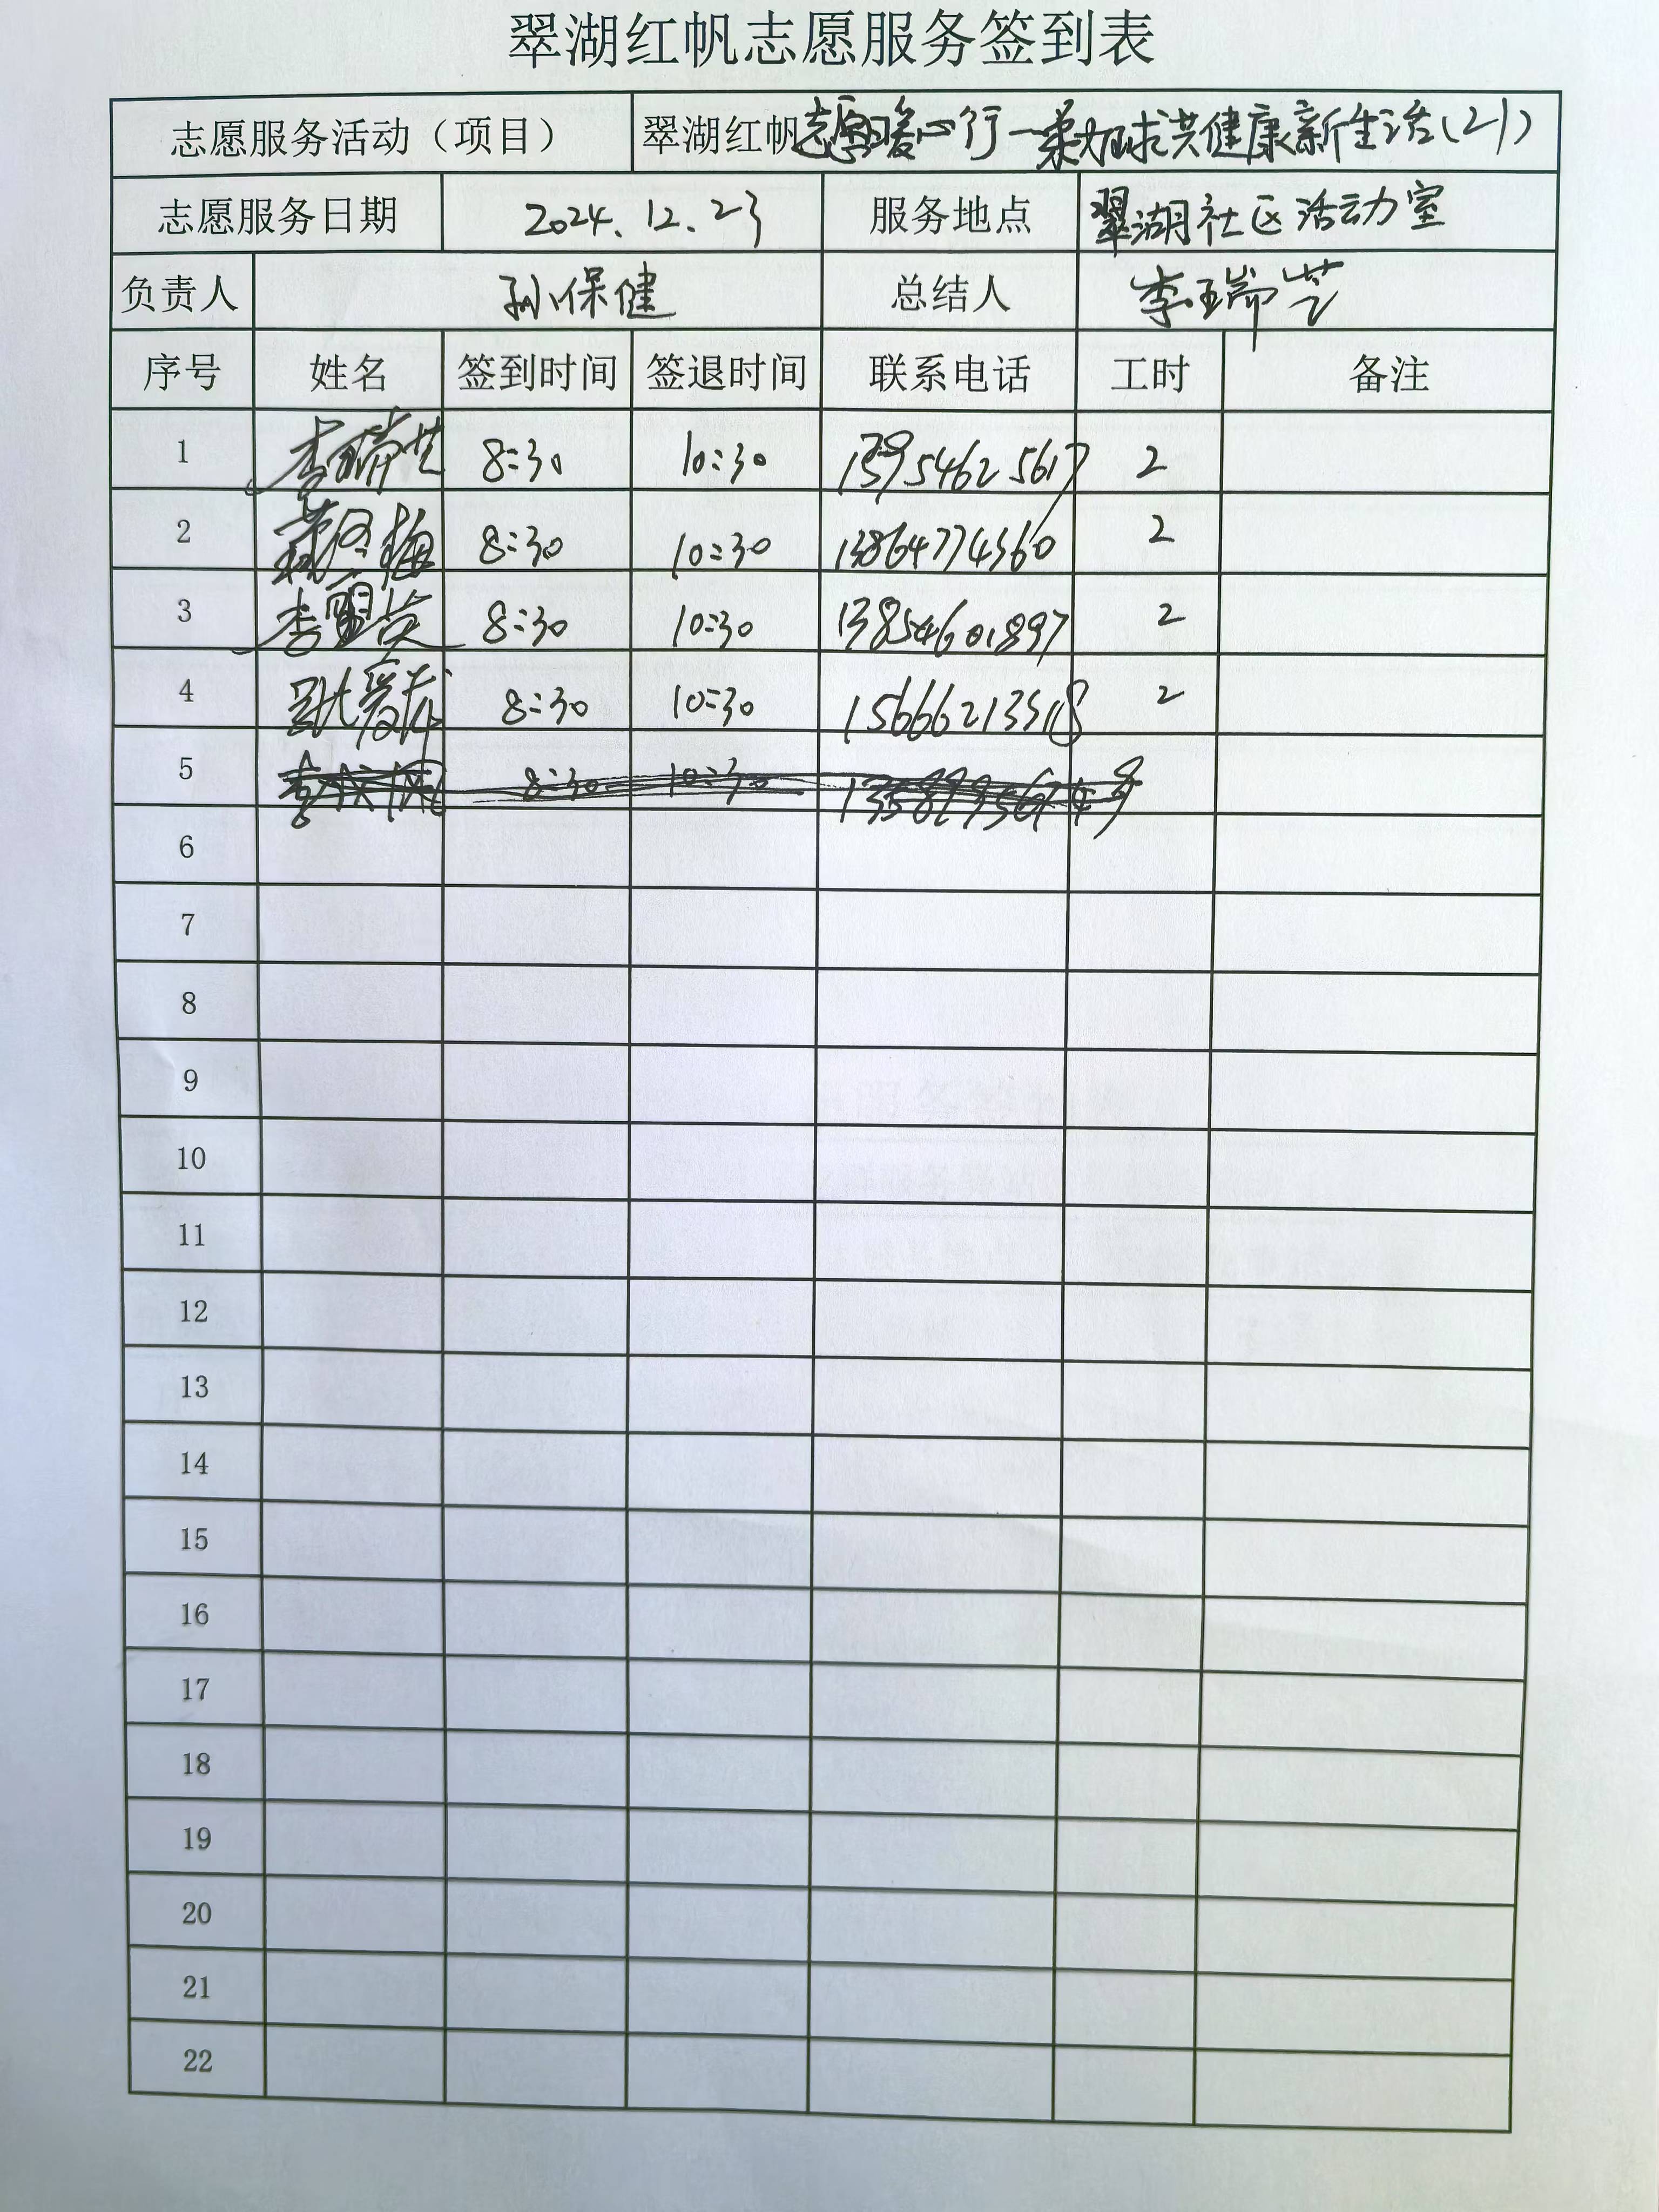 翠湖红帆志愿服务签到表
志愿服务活动（项目） 翠湖红帆志愿暖心行一柔力球共健康新生活(21)
志愿服务日期 2024.12.23 服务地点 翠湖社区活动室
负责人 孙保健 总结人 李瑞芝
序号 姓名 签到时间 签退时间 联系电话 工时 备注
1 李瑞芝 8:30 10:30 13954625617 2
2 8:30 10:30 13864774360 2
3 8:30 10:30 13854601897 2
4 8:30 10:30 2
5 8:30 10:30
6
7
8
9
10
11
12
13
14
15
16
17
18
19
20
21
22